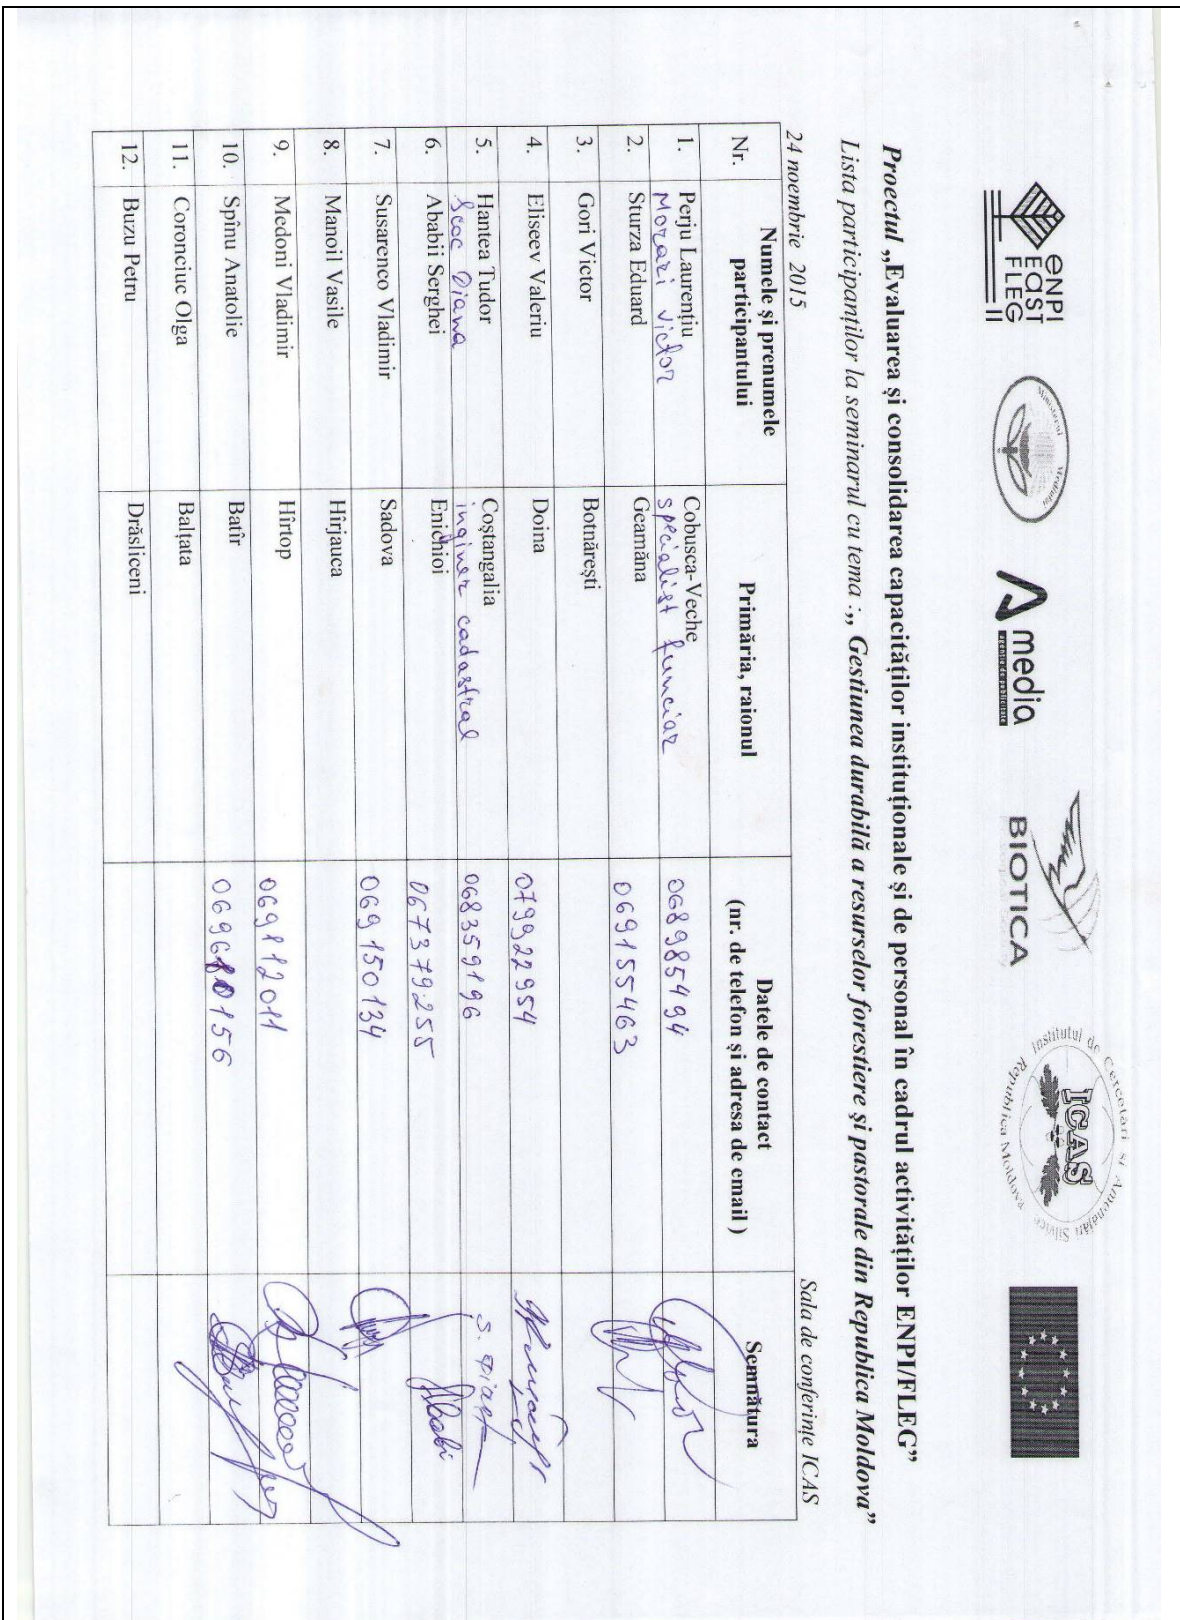 ENPI
EAST
FLEG
II
Ministerul Mediului
media
agenție de publicitate
BIOTICA
Institutul de Cercetări și Amenajări Silvice
ICAS
Republica Moldova
Proectul „Evaluarea și consolidarea capacităților instituționale și de personal în cadrul activităților ENPI/FLEG”
Lista participanților la seminarul cu tema :„ Gestiunea durabilă a resurselor forestiere și pastorale din Republica Moldova”
24 noembrie 2015 Sala de conferințe ICAS
Nr. Numele și prenumele participantului Primăria, raionul Datele de contact (nr. de telefon și adresa de email ) Semnătura
1. Perju Laurențiu Cobusca-Veche 068985494
Morari Victor specialist funciar
2. Sturza Eduard Geamăna 069155463
3. Gori Victor Botnărești
4. Eliseev Valeriu Doina 079922954
5. Hantea Tudor Coștangalia 068359196 S. Diana
Scoc Diana inginer cadastral
6. Ababii Serghei Enichioi 067379255 Ababi
7. Susarenco Vladimir Sadova 069150134
8. Manoil Vasile Hîrjauca
9. Medoni Vladimir Hîrtop 069112011
10. Spînu Anatolie Batîr 069680156
11. Coronciuc Olga Balțata
12. Buzu Petru Drăsliceni